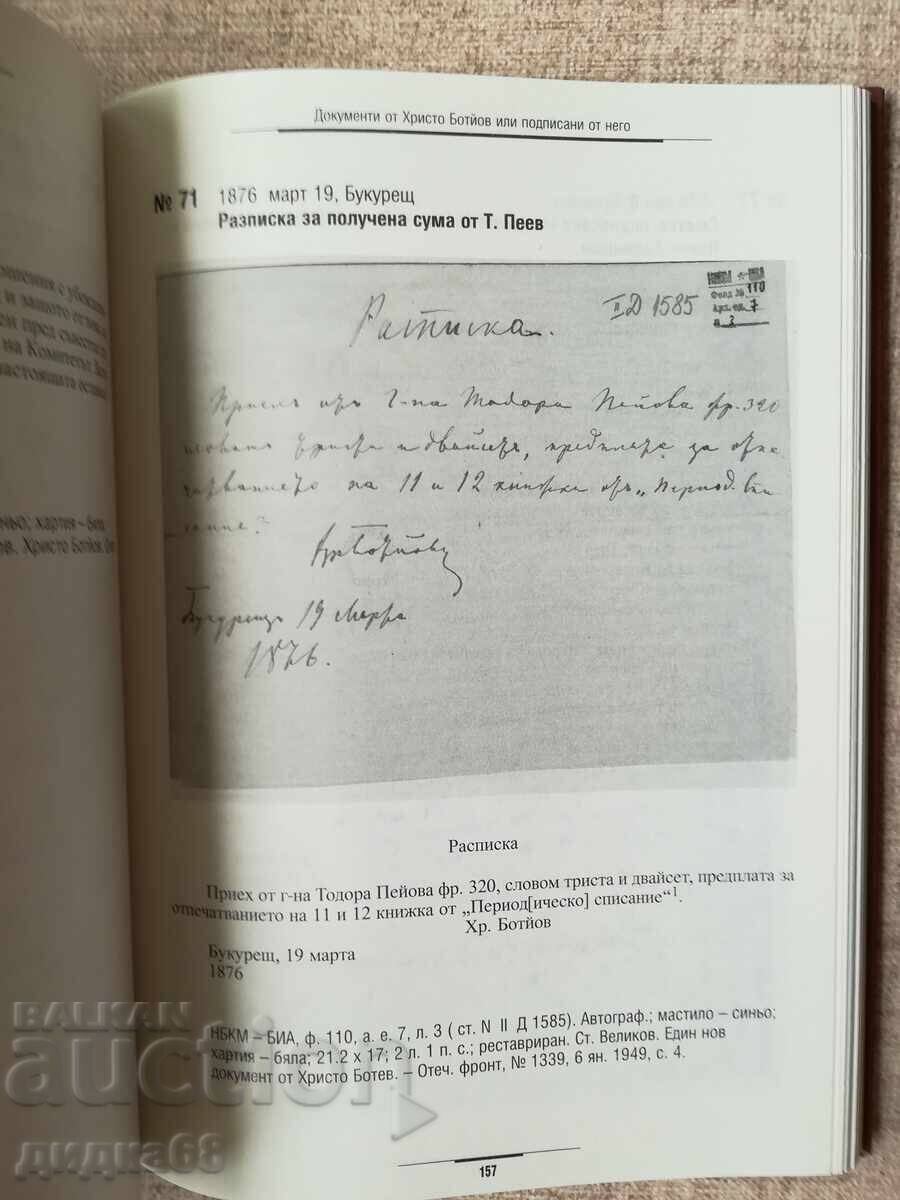 Документи от Христо Ботйов или подписани от него
№ 71 1876 март 19, Букурещ
Разписка за получена сума от Т. Пеев
Фонд № 110
Арх. ед. 7
л. 3
II Д 1585
Расписка.
Приехъ отъ г-на Тодора Пейова фр. 320
словомъ триста и двайсетъ, предплата за отпе
чатванието на 11 и 12 книжка отъ „Период. спи
сание“
Хр. Ботйовъ
Букурещъ 19 Марта
1876.
Расписка
Приех от г-на Тодора Пейова фр. 320, словом триста и двайсет, предплата за
отпечатванието на 11 и 12 книжка от „Период[ическо] списание“¹.
Хр. Ботйов
Букурещ, 19 марта
1876
НБКМ – БИА, ф. 110, а. е. 7, л. 3 ( ст. N II Д 1585). Автограф.; мастило – синьо;
хартия – бяла; 21.2 х 17; 2 л. 1 п. с.; реставриран. Ст. Великов. Един нов
документ от Христо Ботев. – Отеч. фронт, № 1339, 6 ян. 1949, с. 4.
157
и защото от
на Комитетът
настоящата
хартия – бяла
Христо Ботйов.
BALKAN
auction
дидка68